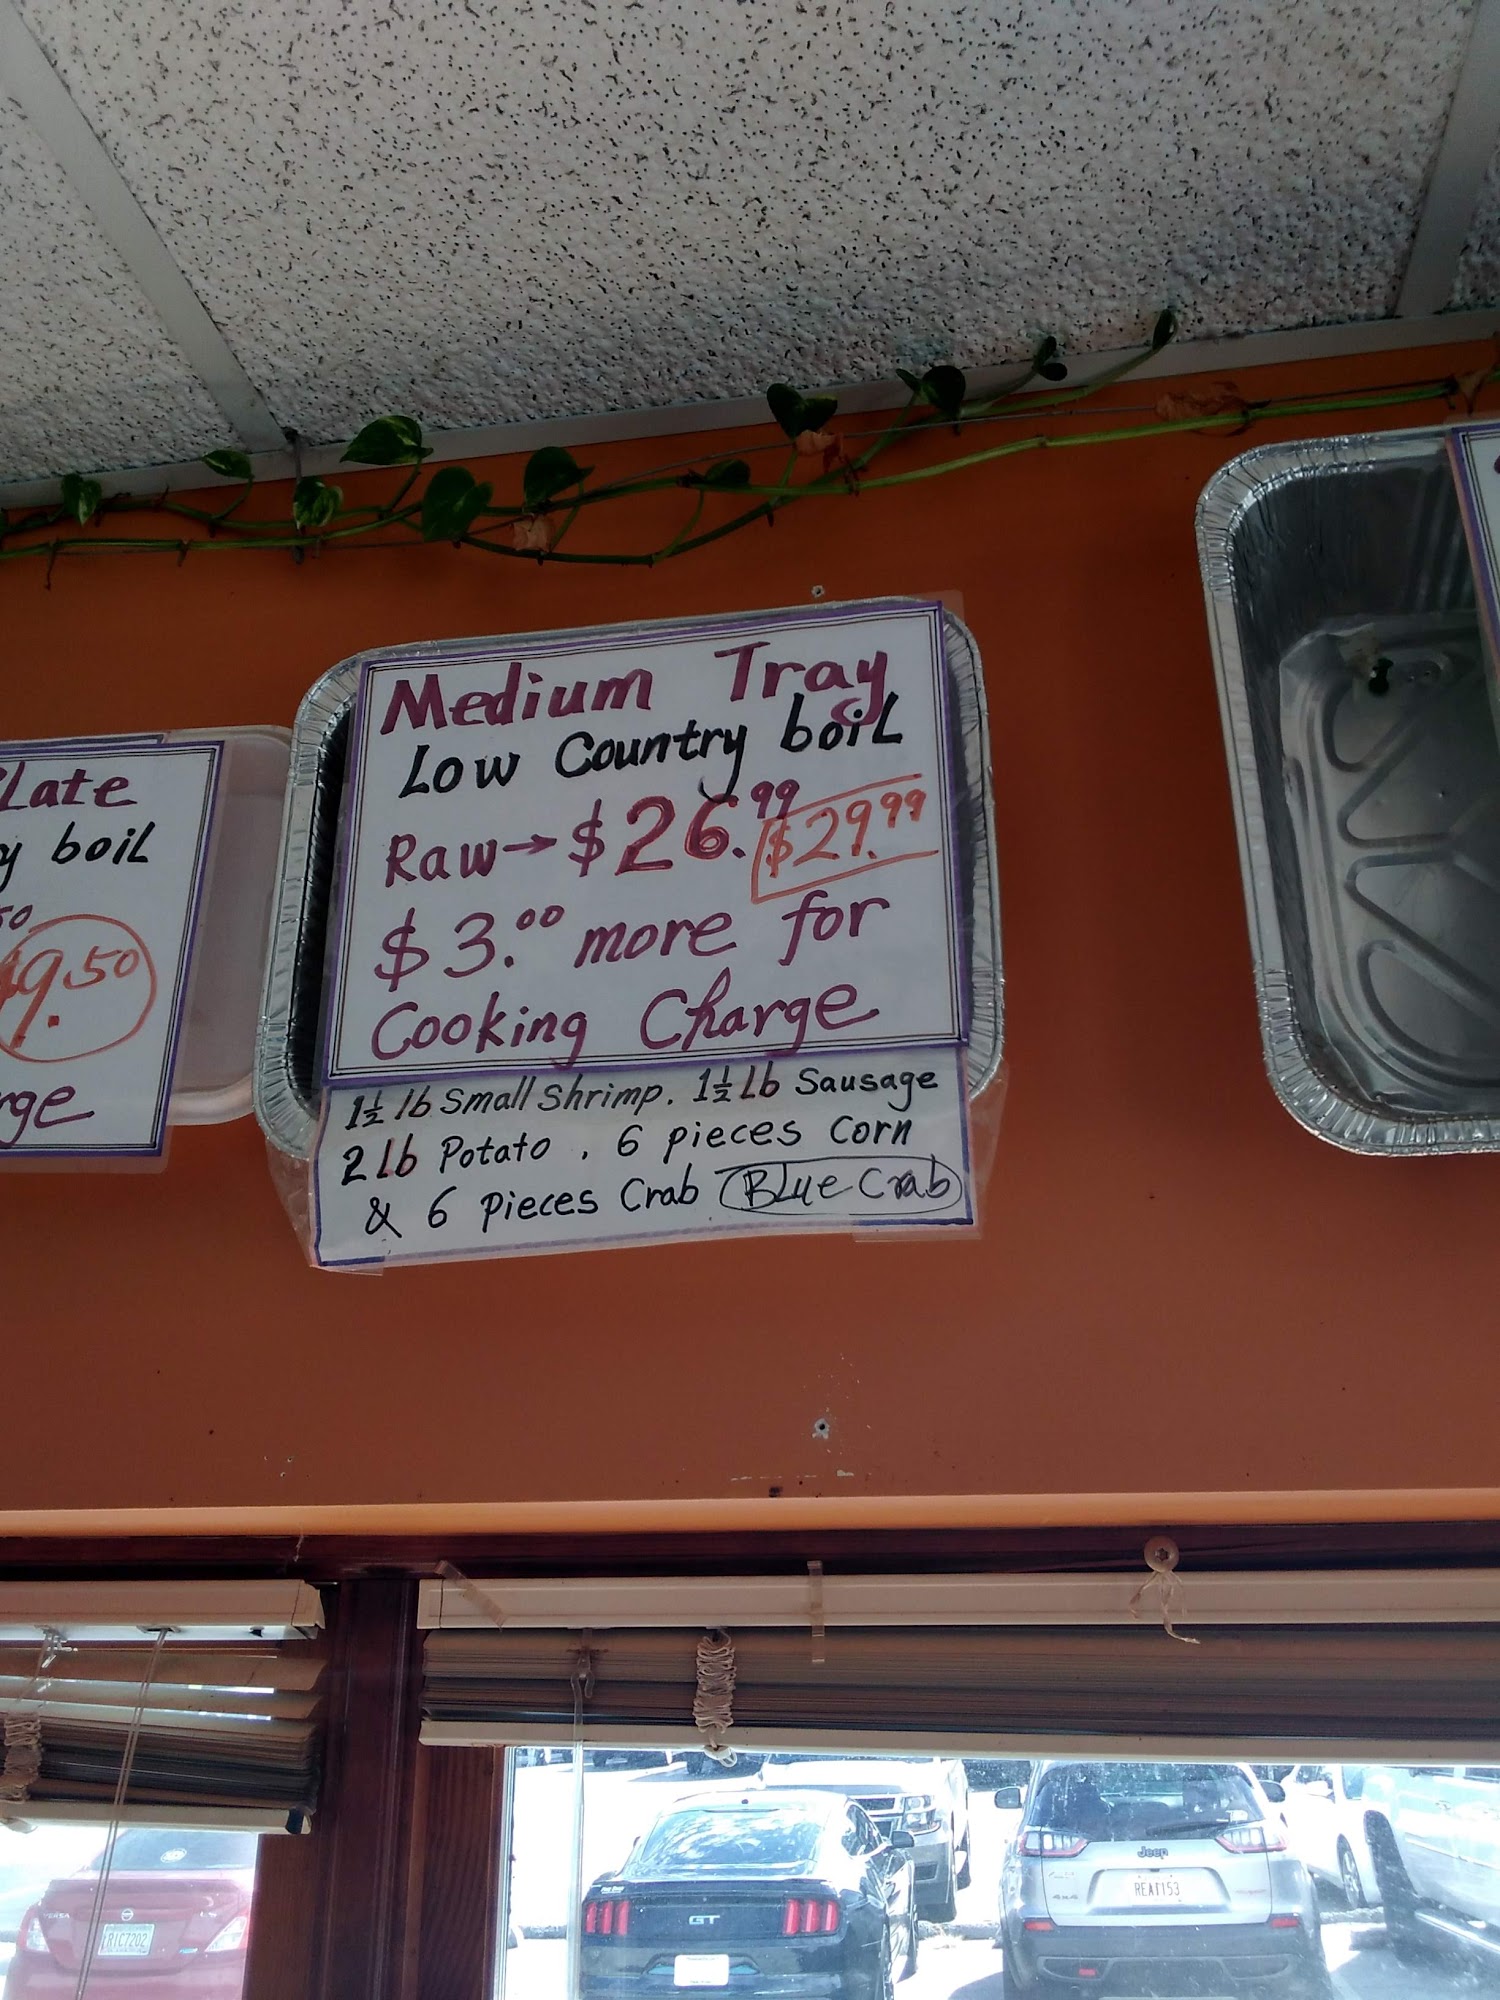 Medium Tray
Low Country boil
Raw→$26.99 $29.99
$3.00 more for
Cooking Charge
1½ lb Small Shrimp. 1½ Lb Sausage
2 Lb Potato, 6 pieces Corn
& 6 Pieces Crab Blue Crab
Late
y boil
50
$9.50
rge
Jeep
4x4
REA1153
GT
VERSA
RIC7202